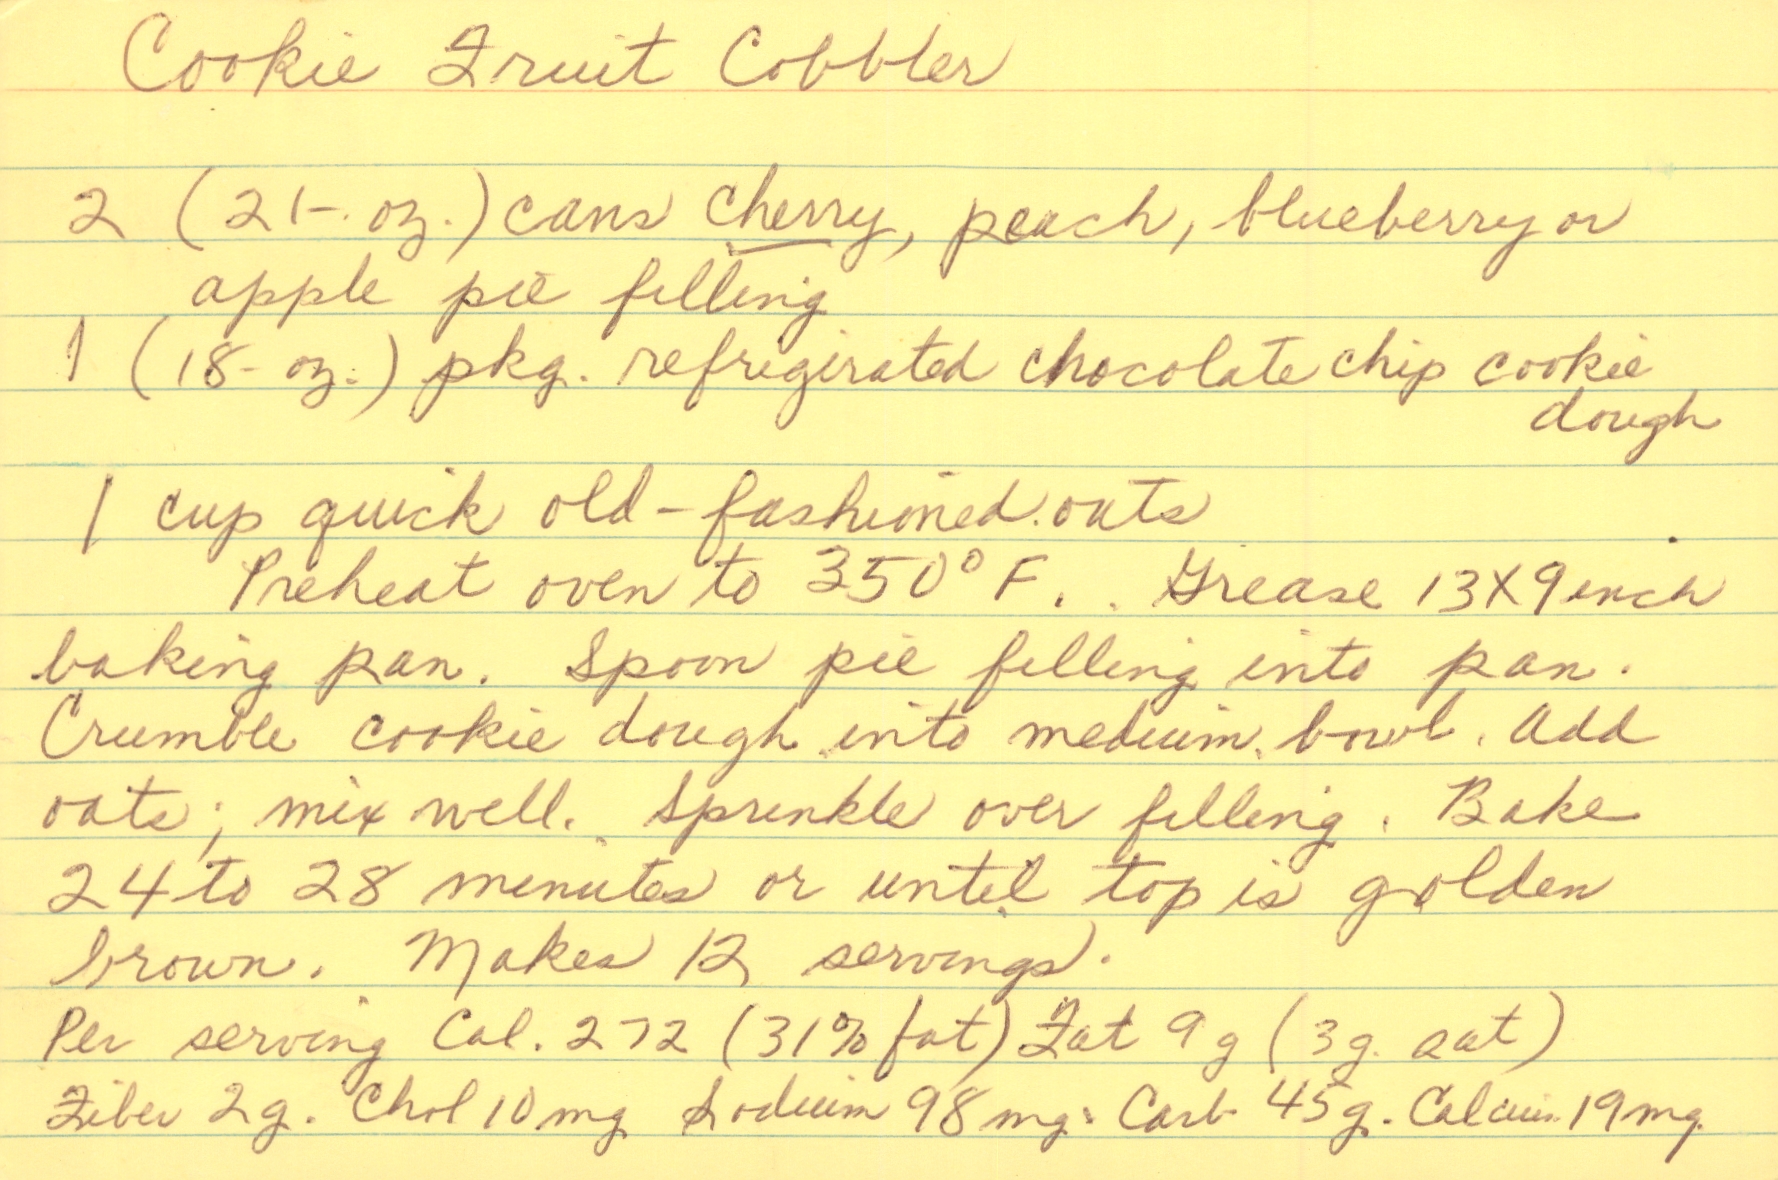 Cookie Fruit Cobbler
2 (21-oz.) cans cherry, peach, blueberry or
apple pie filling
1 (18-oz.) pkg. refrigirated chocolate chip cookie
dough
1 cup quick old-fashioned oats
Preheat oven to 350° F. Grease 13X9 inch
baking pan. Spoon pie filling into pan.
Crumble cookie dough into medium bowl. Add
oats; mix well. Sprinkle over filling. Bake
24 to 28 minutes or until top is golden
brown. Makes 12 servings.
Per serving Cal. 272 (31% fat) Fat 9g (3g. sat)
Fiber 2g. Chol 10 mg Sodium 98 mg. Carb 45g. Calcium 19 mg.